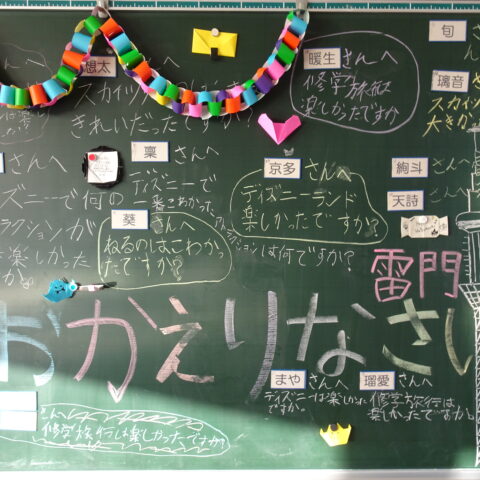 想太
スカイツ
きれいだったですか
暖生 さんへ
修学旅行
楽しかったですか
旬
璃音
スカイツ
大きかっ
さんへ
凛 さんへ
ディズニーで
一番こわかった
アトラクションは何ですか?
ズニーで何の
ラクションが
楽しかった
か。
葵 さんへ
ねるのはこわかっ
たですか?
京多 さんへ
ディズニーランド
楽しかったですか?
絢斗 さんへ
天詩 さんへ
雷門
おかえりなさい
まや さんへ
ディズニーは楽しかった
ですか。
瑠愛 さんへ
修学旅行は、
楽しかったですか。
さんへ
修学旅行は楽しかったですか?